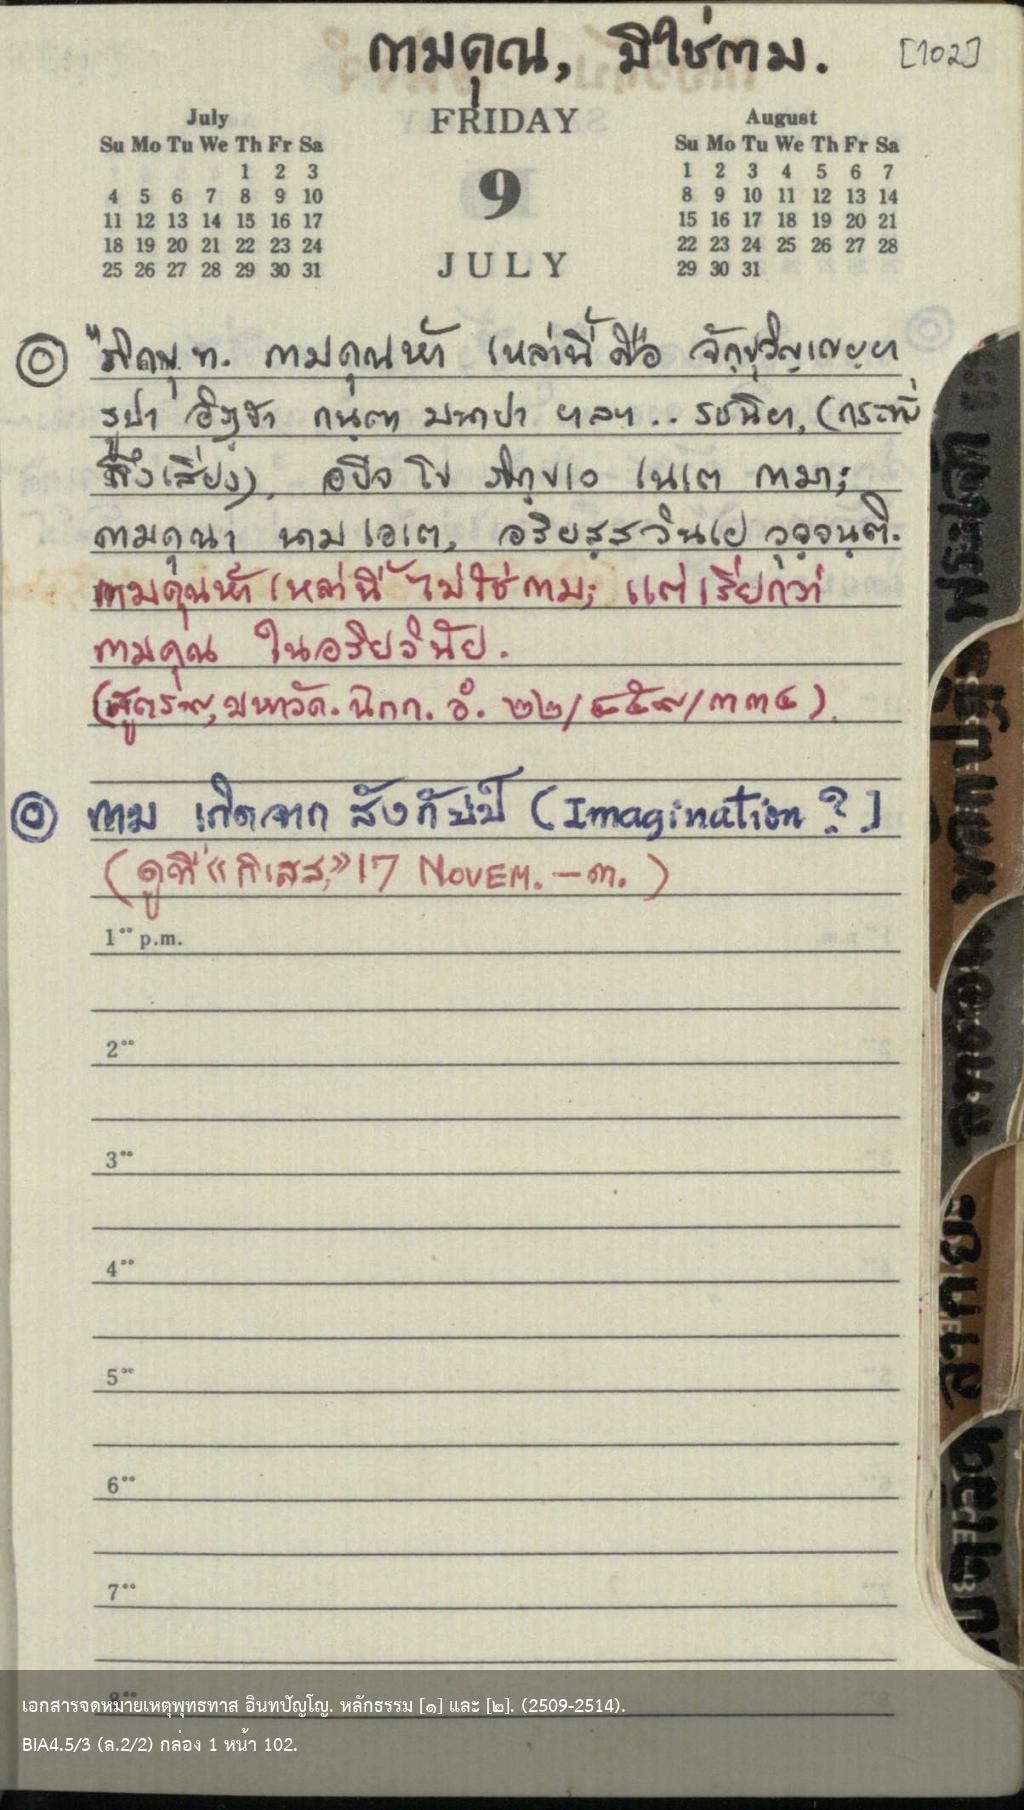 กามคุณ, มิใช่กาม. [102]
July
Su Mo Tu We Th Fr Sa
1 2 3
4 5 6 7 8 9 10
11 12 13 14 15 16 17
18 19 20 21 22 23 24
25 26 27 28 29 30 31
FRIDAY
9
JULY
August
Su Mo Tu We Th Fr Sa
1 2 3 4 5 6 7
8 9 10 11 12 13 14
15 16 17 18 19 20 21
22 23 24 25 26 27 28
29 30 31
"ภิกษุ ท. กามคุณห้า เหล่านี้ คือ จักฺขุวิญฺเญยฺยา
รูปา อิฏฺฐา กนฺตา มนาปา ฯลฯ.. รชนียา, (กระทั่ง
ถึงเสียง), อปิจ โข ภิกฺขเว เนเต กามา;
กามคุณา นาม เอเต, อริยสฺส วินเย วุจฺจนฺติ.
กามคุณห้า เหล่านี้ ไม่ใช่กาม; แต่เรียกว่า
กามคุณ ในอริยวินัย.
มหาวัค. ฉักก. อํ. ๒๒/๔๕๙/๓๓๔).
กาม เกิดจาก สังกัปป์ (Imagination ?)
(ดูที่ «กิเลส,» 17 NOVEM. – ๓. )
1°° p.m.
2°°
3°°
4°°
5°°
6°°
7°°
8°°
เอกสารจดหมายเหตุพุทธทาส อินทปัญโญ. หลักธรรม [๑] และ [๒]. (2509-2514).
BIA4.5/3 (ล.2/2) กล่อง 1 หน้า 102.